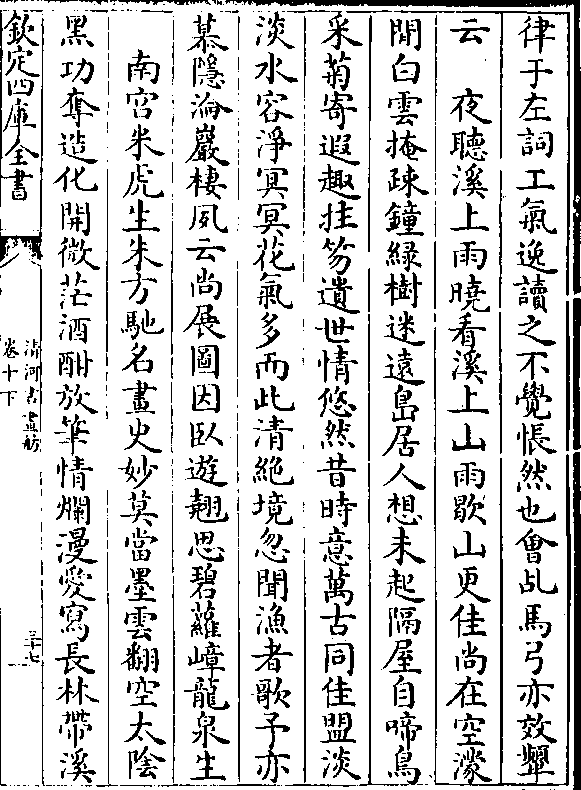 律于左詞工氣逸讀之不覺悵然也會乩馬弓亦效顰
云　夜聽溪上雨曉看溪上山雨歇山更佳尚在空濛
間白雲掩疎鐘緑樹迷遠島居人想未起隔屋自啼鳥
采菊寄遐趣拄笏遺世情悠然昔時意萬古同佳盟淡
淡水容淨冥冥花氣多而此清絶境忽聞漁者歌予亦
慕隠淪巖棲夙云尚展圖因卧遊翹思碧蘿嶂龍泉生
南宫朱虎生朱方馳名畫史妙莫當墨雲翻空太陰
黑功奪造化開微茫酒酣放筆情爛漫愛寫長林帶溪
欽定四庫全書
清河書畫舫
卷十下
三十七